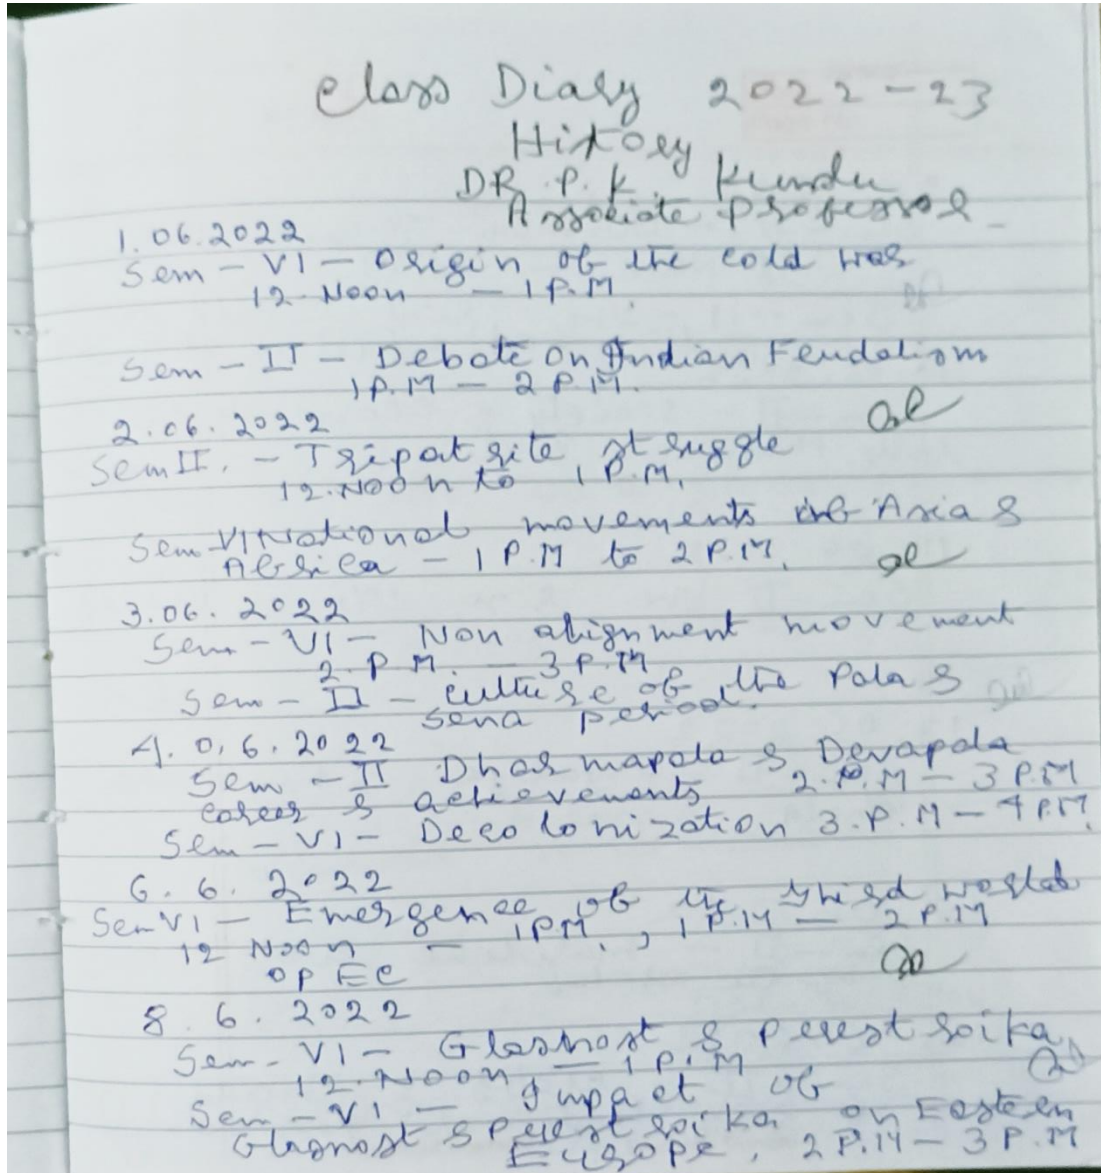 Class Diary 2022-23
History
DR. P. K. Kundu
Associate Professor
1.06.2022
Sem - VI - Origin of the cold war
12 Noon - 1 P.M.
Sem - II - Debate on Indian Feudalism
1 P.M - 2 P.M.
2.06.2022
Sem II. - Tripatrite struggle
12.Noon to 1 P.M.
Sem-VI National movements in Asia &
Africa - 1 P.M to 2 P.M.
3.06.2022
Sem - VI - Non alignment movement
2. P.M. - 3 P.M
Sem - II - culture of the Pala &
Sena period.
4.0.6.2022
Sem - II Dharmapala & Devapala
career & achievements 2.P.M - 3 P.M
Sem - VI - Decolonization 3.P.M - 4 P.M.
6.6.2022
Sem VI - Emergence of the third world
12 Noon - 1 P.M., 1 P.M - 2 P.M
OPEC
8.6.2022
Sem - VI - Glasnost & Perestroika
12.Noon - 1 P.M
Sem - VI - Impact of
Glasnost & Perestroika on Eastern
Europe. 2 P.M - 3 P.M